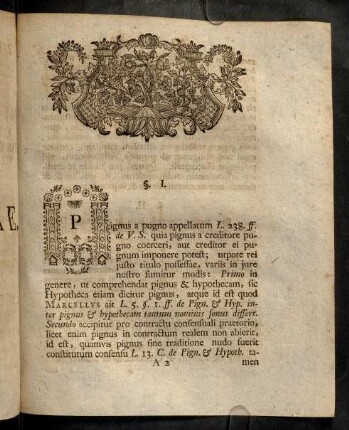 §. I.
Pignus a pugno appellatum L. 238. ff.
de V. S. quia pignus a creditore pu-
gno coerceri, aut creditor ei pu-
gnum imponere potest; utpote rei
justo titulo possessae, variis in jure
nostro sumitur modis: Primo in
genere, ut comprehendat pignus & hypothecam, sic
Hypotheca etiam dicitur pignus, atque id est quod
MARCELLUS ait L. 5. §. 1. ff. de Pign. & Hyp. in-
ter pignus & hypothecam tantum nominis sonus differt.
Secundo accipitur pro contractu consensuali praetorio,
licet enim pignus in contractum realem non abierit,
id est, quamvis pignus sine traditione nudo fuerit
constitutum consensu L. 13. C. de Pign. & Hypoth. ta-
A 2 men